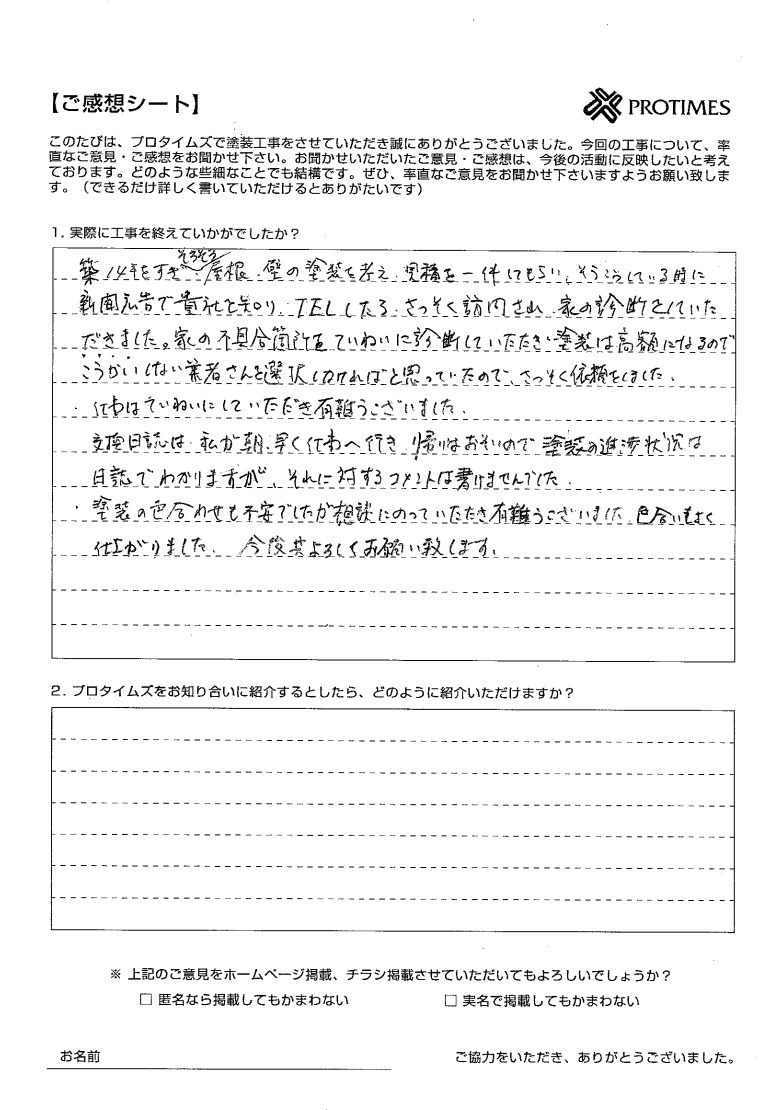 【ご感想シート】
PROTIMES
このたびは、プロタイムズで塗装工事をさせていただき誠にありがとうございました。今回の工事について、率
直なご意見・ご感想をお聞かせ下さい。お聞かせいただいたご意見・ご感想は、今後の活動に反映したいと考え
ております。どのような些細なことでも結構です。ぜひ、率直なご意見をお聞かせ下さいますようお願い致しま
す。（できるだけ詳しく書いていただけるとありがたいです）
1. 実際に工事を終えていかがでしたか？
築14年をすぎそろそろ屋根、壁の塗装を考え、見積を一件してもらい、そうこうしている時に
新聞広告で貴社を知り、TELしたら、さっそく訪問され、家の診断をしていた
だきました。家の不具合箇所をていねいに診断していただき、塗装は高額になるので
こうかいしない業者さんを選択しなければと思っていたので、さっそく依頼をしました。
・仕事はていねいにしていただき有難うございました。
交換日誌は、私が朝、早く仕事へ行き、帰りはおそいので塗装の進渉状況は
日誌でわかりますが、それに対するコメントは書けませんでした。
・塗装の色合わせも不安でしたが相談にのっていただき有難うございました。色合いもよく
仕上がりました。今後共よろしくお願い致します。
2. プロタイムズをお知り合いに紹介するとしたら、どのように紹介いただけますか？
※ 上記のご意見をホームページ掲載、チラシ掲載させていただいてもよろしいでしょうか？
□ 匿名なら掲載してもかまわない　□ 実名で掲載してもかまわない
お名前　ご協力をいただき、ありがとうございました。